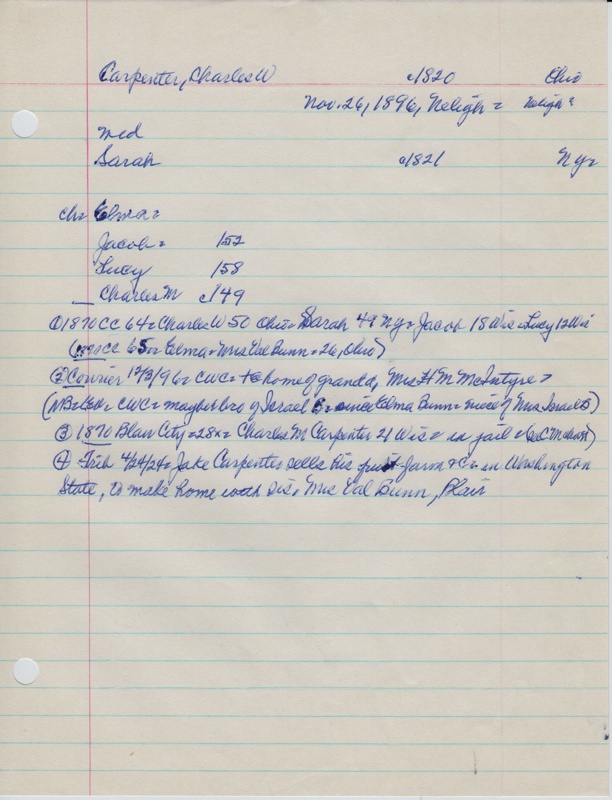 Carpenter, Charles W c1820 Ohio
Nov. 26, 1896, Neligh = Neligh =
med
Sarah c1821 Ny=
ch= Elma=
Jacob= 152
Lucy 158
Charles M c149
① 1870 CC 64= Charles W 50 Ohio= Sarah 49 Ny= Jacob 18 Wis= Lucy 12 Wis
(1870 CC 65= Elma= Mrs Val Bunn= 26, Ohio)
② Courier 12/3/96= CWC= home of granda, Mrs H M McIntyre=
(NB= CWC= maybe bro of Israel B= since Elma Bunn= niece of Mrs Israel)
③ 1870 Blair City= 28x= Charles M Carpenter 21 Wis= in jail=
④ Trib 4/24/24= Jake Carpenter sells his fruit farm &c= in Washington
State, to make home with sis, Mrs Val Bunn, Blair